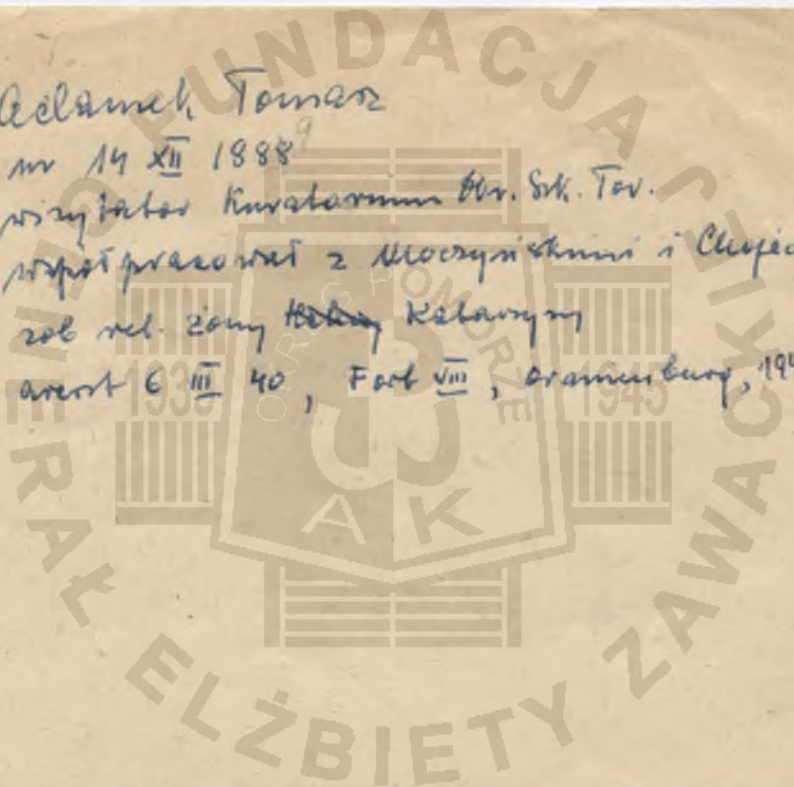 Adamek Tomasz
ur 14 XII 1888 9
wizytator Kuratorium Okr. Szk. Tor.
współpracował z Moczyńskimi i Chojec
zob rel. żony Heleny Katarzyny
areszt 6 III 40, Fort VIII, Oranienburg, 194
FUNDACJA
GENERAŁ ELŻBIETY ZAWACKIEJ
OKRĘG POMORZE
1939 1945
AK